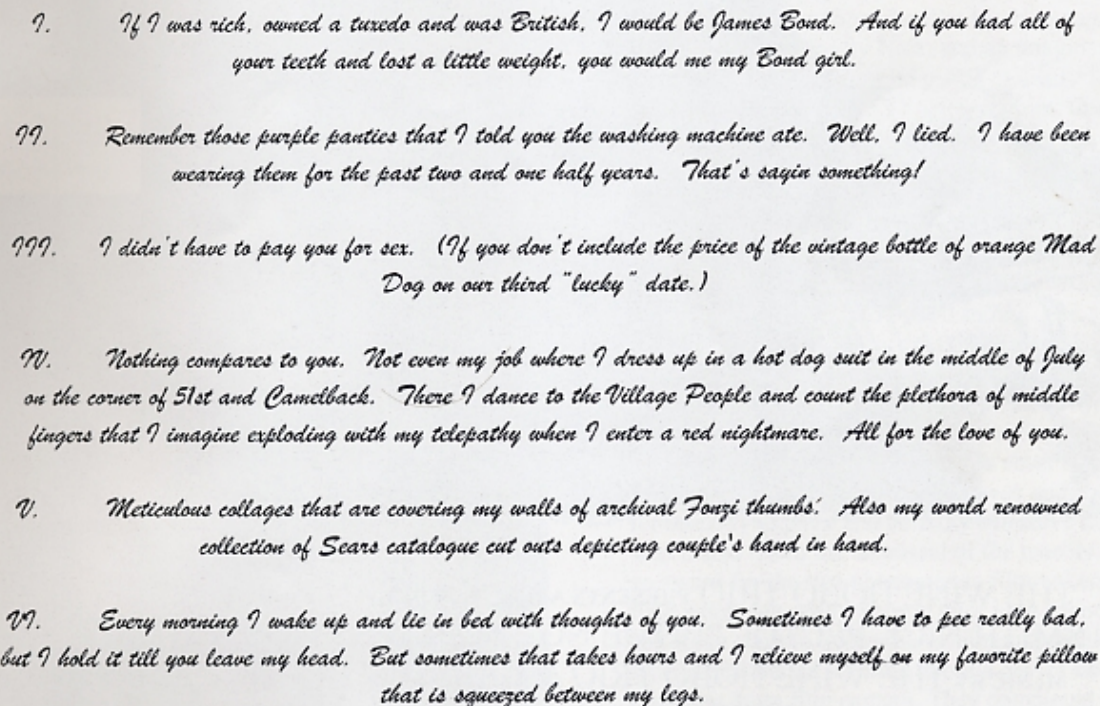 I. If I was rich, owned a tuxedo and was British, I would be James Bond. And if you had all of
your teeth and lost a little weight, you would me my Bond girl.
II. Remember those purple panties that I told you the washing machine ate. Well, I lied. I have been
wearing them for the past two and one half years. That's sayin something!
III. I didn't have to pay you for sex. (If you don't include the price of the vintage bottle of orange Mad
Dog on our third "lucky" date.)
IV. Nothing compares to you. Not even my job where I dress up in a hot dog suit in the middle of July
on the corner of 51st and Camelback. There I dance to the Village People and count the plethora of middle
fingers that I imagine exploding with my telepathy when I enter a red nightmare. All for the love of you.
V. Meticulous collages that are covering my walls of archival Fonzi thumbs'. Also my world renowned
collection of Sears catalogue cut outs depicting couple's hand in hand.
VI. Every morning I wake up and lie in bed with thoughts of you. Sometimes I have to pee really bad,
but I hold it till you leave my head. But sometimes that takes hours and I relieve myself on my favorite pillow
that is squeezed between my legs.